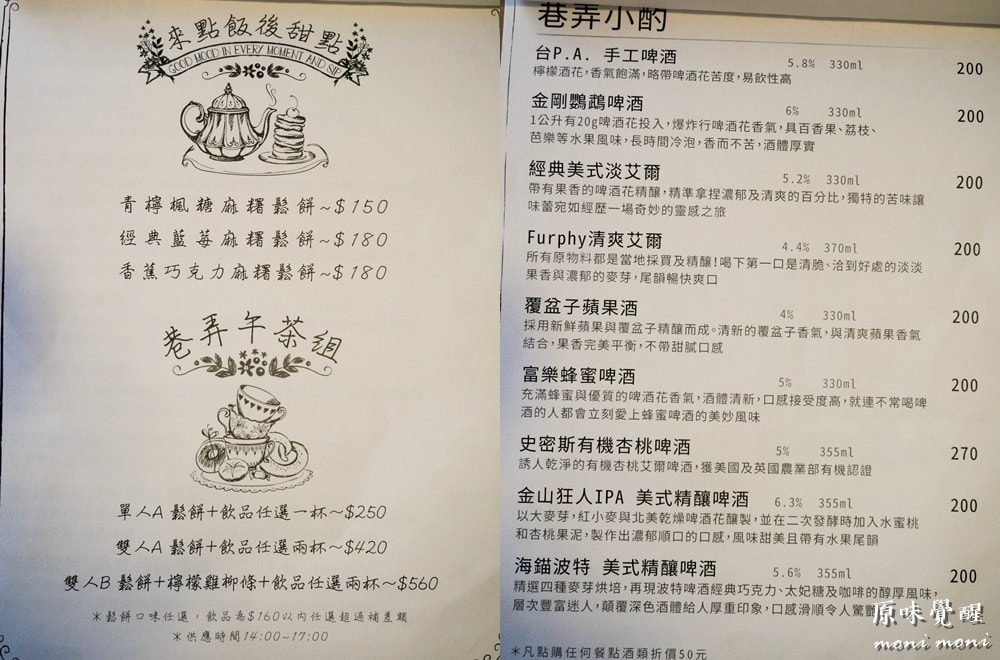 來點飯後甜點
GOOD MOOD IN EVERY MOMENT AND SIP
青檸楓糖麻糬鬆餅~$150
經典藍莓麻糬鬆餅~$180
香蕉巧克力麻糬鬆餅~$180
巷弄午茶組
單人A 鬆餅+飲品任選一杯~$250
雙人A 鬆餅+飲品任選兩杯~$420
雙人B 鬆餅+檸檬雞柳條+飲品任選兩杯~$560
*鬆餅口味任選,飲品為$160以內任選超過補差額
*供應時間14:00~17:00
巷弄小酌
台P.A. 手工啤酒 5.8% 330ml 200
檸檬酒花,香氣飽滿,略帶啤酒花苦度,易飲性高
金剛鸚鵡啤酒 6% 330ml 200
1公升有20g啤酒花投入,爆炸行啤酒花香氣,具百香果、荔枝、
芭樂等水果風味,長時間冷泡,香而不苦,酒體厚實
經典美式淡艾爾 5.2% 330ml 200
帶有果香的啤酒花精釀,精準拿捏濃郁及清爽的百分比,獨特的苦味讓
味蕾宛如經歷一場奇妙的靈感之旅
Furphy清爽艾爾 4.4% 370ml 200
所有原物料都是當地採買及精釀!喝下第一口是清脆、洽到好處的淡淡
果香與濃郁的麥芽,尾韻暢快爽口
覆盆子蘋果酒 4% 330ml 200
採用新鮮蘋果與覆盆子精釀而成。清新的覆盆子香氣,與清爽蘋果香氣
結合,果香完美平衡,不帶甜膩口感
富樂蜂蜜啤酒 5% 330ml 200
充滿蜂蜜與優質的啤酒花香氣,酒體清新,口感接受度高,就連不常喝啤
酒的人都會立刻愛上蜂蜜啤酒的美妙風味
史密斯有機杏桃啤酒 5% 355ml 270
誘人乾淨的有機杏桃艾爾啤酒,獲美國及英國農業部有機認證
金山狂人IPA 美式精釀啤酒 6.3% 355ml 200
以大麥芽,紅小麥與北美乾燥啤酒花釀製,並在二次發酵時加入水蜜桃
和杏桃果泥,製作出濃郁順口的口感,風味甜美且帶有水果尾韻
海錨波特 美式精釀啤酒 5.6% 355ml 200
精選四種麥芽烘培,再現波特啤酒經典巧克力、太妃糖及咖啡的醇厚風味,
層次豐富迷人,顛覆深色酒體給人厚重印象,口感滑順令人驚
*凡點購任何餐點酒類折價50元
原味覺醒
moni moni